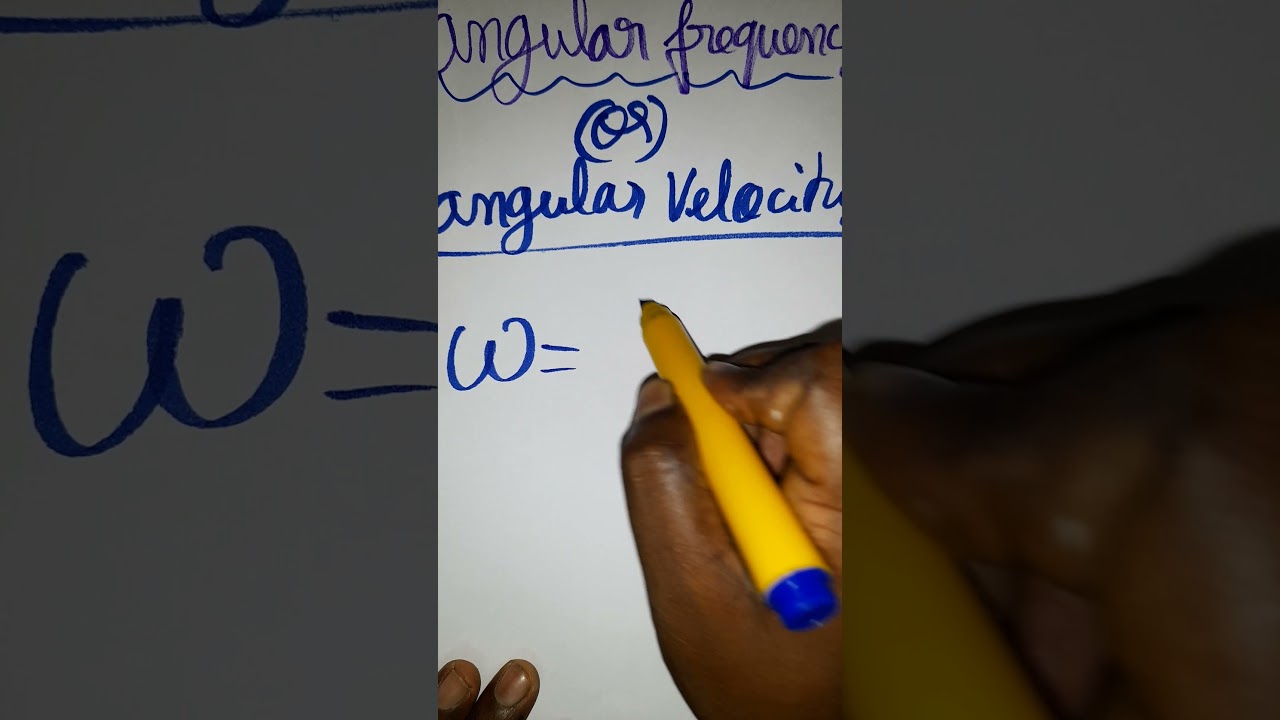 angular frequenc
(or)
angular Velocity
ω=